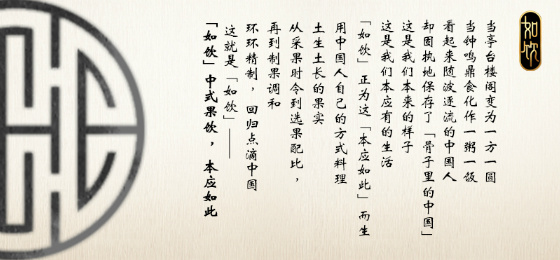 如饮
当亭台楼阁变为一方一圆
当钟鸣鼎食化作一粥一饭
看起来随波逐流的中国人
却固执地保存了「骨子里的中国」
这是我们本来的样子
这是我们本应有的生活
「如饮」正为这「本应如此」而生
用中国人自己的方式料理
土生土长的果实
从采果时令到选果配比，
再到制果调和
环环精制，回归点滴中国
这就是「如饮」——
「如饮」中式果饮，本应如此